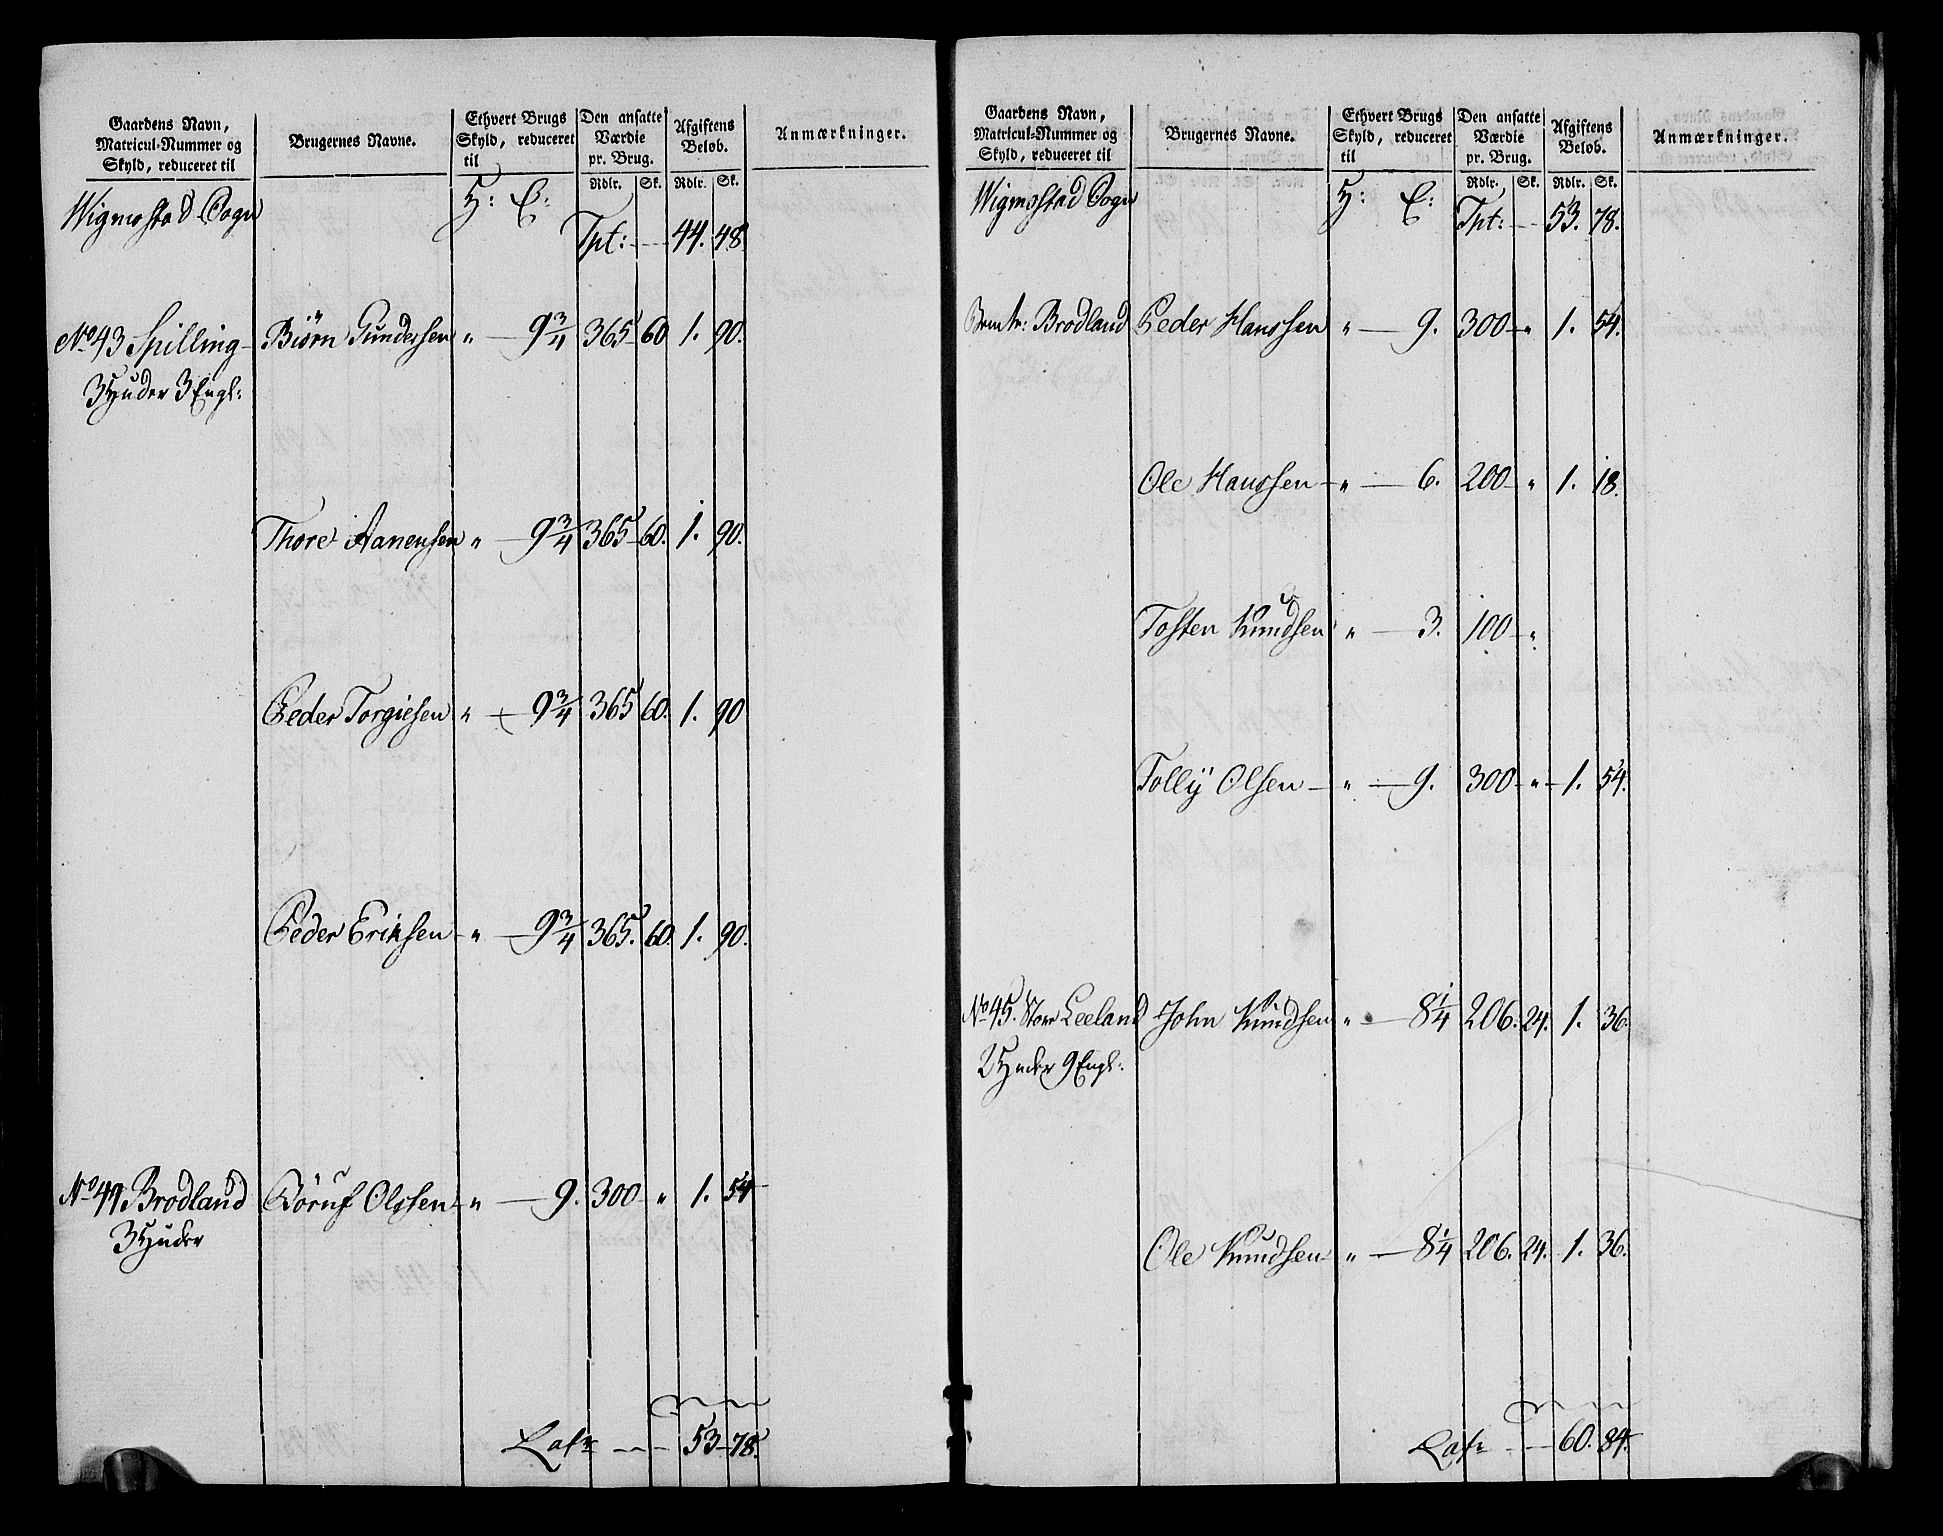 Gaardens Navn, Matricul-Nummer og Skyld, reduceret til | Brugernes Navne. | Ethvert Brugs Skyld, reduceret til | Den ansatte Værdie pr. Brug. Rdlr. Sk. | Afgiftens Beløb. Rdlr. Sk. | Anmærkninger.
Wigmostad Sogn H: E: Tpt: 44. 48
No 43 Spilling Biørn Gundersen " 9 3/4 365 60 1. 90.
3 Huder 3 Engl:
Thore Aanensen " 9 3/4 365 60. 1. 90.
Peder Torgiesen " 9 3/4 365 60. 1. 90
Peder Eriksen " 9 3/4 365. 60. 1. 90.
No 44 Brødland Olssen " 9. 300 " 1. 54
3 Huder
Lat 53 78.
Gaardens Navn, Matricul-Nummer og Skyld, reduceret til | Brugernes Navne. | Ethvert Brugs Skyld, reduceret til | Den ansatte Værdie pr. Brug. Rdlr. Sk. | Afgiftens Beløb. Rdlr. Sk. | Anmærkninger.
Wigmostad Sogn H: E: Tpt: 53. 78.
Brødland Peder Hanssen " 9. 300 " 1. 54.
Ole Hanssen " 6. 200 " 1. 18.
Tosten Knudsen " 3. 100 "
Tollij Olsen " 9. 300 " 1. 54.
No 45. Store Leeland John Knudsen " 8 1/4 206. 24. 1. 36
2 Huder 9 Engl:
Ole Knudsen " 8 1/4 206. 24. 1. 36.
Lat 60. 84.